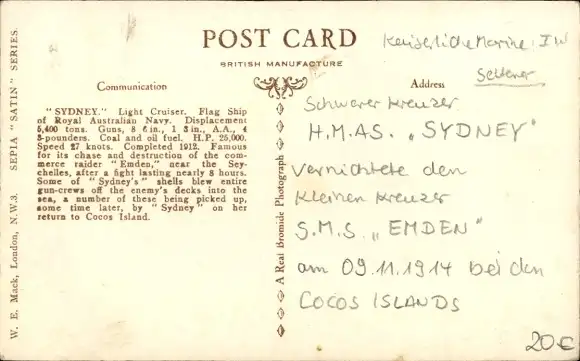 POST CARD
BRITISH MANUFACTURE
Communication
Address
"SYDNEY." Light Cruiser. Flag Ship
of Royal Australian Navy. Displacement
5,400 tons. Guns, 8 6 in., 1 3 in., A.A., 4
3-pounders. Coal and oil fuel. H.P. 25,000.
Speed 27 knots. Completed 1912. Famous
for its chase and destruction of the com-
merce raider "Emden," near the Sey-
chelles, after a fight lasting nearly 8 hours.
Some of "Sydney's" shells blew entire
gun-crews off the enemy's decks into the
sea, a number of these being picked up,
some time later, by "Sydney" on her
return to Cocos Island.
W. E. Mack, London, N.W.3. SEPIA "SATIN" SERIES.
A Real Bromide Photograph
Kaiserliche Marine: I W
Seltener
Schwerer Kreuzer
H.M.AS. „SYDNEY"
vernichtete den
Kleinen Kreuzer
S.M.S „EMDEN"
am 09.11.1914 bei den
COCOS ISLANDS
20€